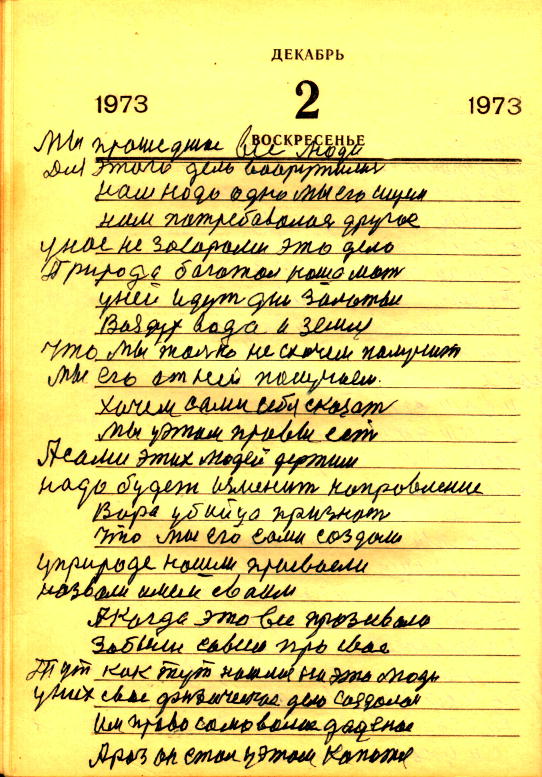 ДЕКАБРЬ
1973 2 1973
ВОСКРЕСЕНЬЕ
Мы прошедшие все люди
Для этого дела вооружили
нам надо одно мы его ищем
нам потребавалая другое
у нас не забарали это дело
Природа багатая наша мат
у ней идут дни залатыи
Воздух вода и земля
Что мы толко не схочем палучит
мы его от ней получаем.
хочем сами себя сказат
мы у этом правы ест
А сами этих людей держим
надо будет изменит направление
Вора убийца признат
что мы его сами создали
у природе нашли присваели
назвали имей сваим
А когда это все празывала
Забыли савсем про свае
Тут как тут нашли на эта люди
у них свае физическае дело создалас
им право самоволие даденое
А раз он стал у этом